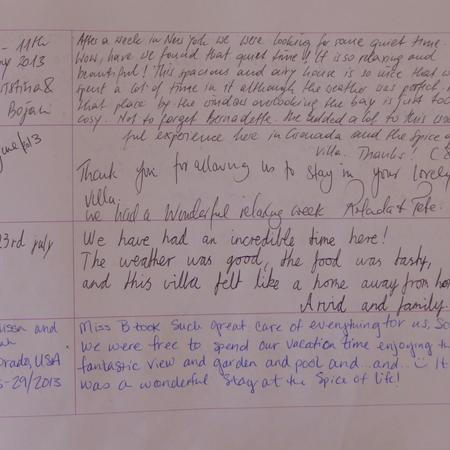 - 11th
2013
Bojan
After a week in New York we were looking for some quiet time.
Wow, have we found that quiet time! It is so relaxing and
beautiful! This spacious and airy house is so nice that w
spent a lot of time in it although the weather was perfect.
that place by the window overlooking the bay is just too
cosy. Not to forget Bernadette. She added a lot to this won
ful experience here in Grenada and the Spice of
Villa. Thanks! C&
June 2013
Thank you for allowing us to stay in your lovely
villa.
We had a wonderful relaxing week & Pete.
23rd july
We have had an incredible time here!
The weather was good, the food was tasty,
and this villa felt like a home away from ho
Arvid and family.
issa and
orado, USA
-29/2013
Miss B took such great care of everything for us. So
we were free to spend our vacation time enjoying th
fantastic view and garden and pool and...and.. It
was a wonderful stay at the Spice of Life!